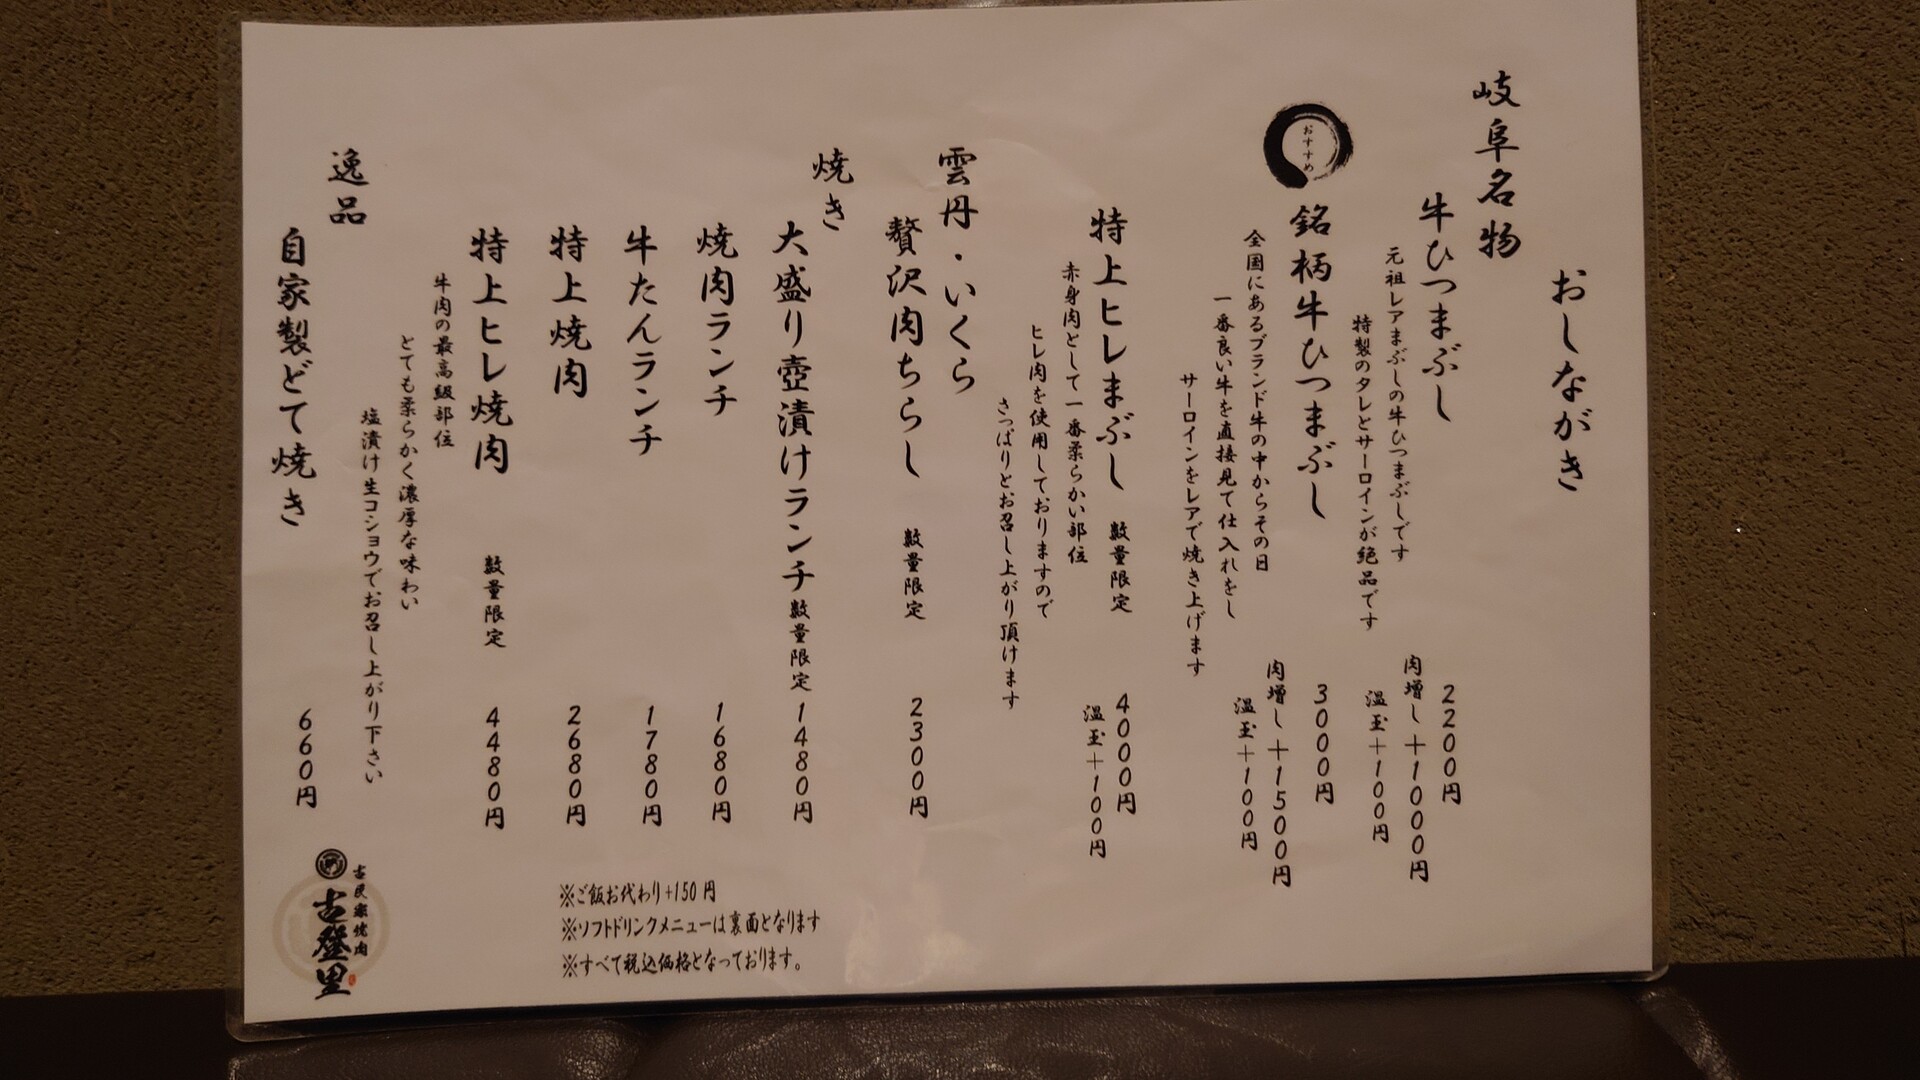 おしながき
岐阜名物
牛ひつまぶし
2200円
元祖レアまぶしの牛ひつまぶしです
肉増し+1000円
特製のタレとサーロインが絶品です
温玉+100円
おすすめ
銘柄牛ひつまぶし
3000円
全国にあるブランド牛の中からその日
肉増し+1500円
一番良い牛を直接見て仕入れをし
温玉+100円
サーロインをレアで焼き上げます
特上ヒレまぶし 数量限定
4000円
赤身肉として一番柔らかい部位
温玉+100円
ヒレ肉を使用しておりますので
さっぱりとお召し上がり頂けます
雲丹・いくら
贅沢肉ちらし 数量限定 2300円
焼き
大盛り壺漬けランチ 数量限定 1480円
焼肉ランチ 1680円
牛たんランチ 1780円
特上焼肉 2680円
特上ヒレ焼肉 数量限定 4480円
牛肉の最高級部位
とても柔らかく濃厚な味わい
塩漬け生コショウでお召し上がり下さい
逸品
自家製どて焼き 660円
※ご飯お代わり+150円
※ソフトドリンクメニューは裏面となります
※すべて税込価格となっております。
古民家焼肉
古登里